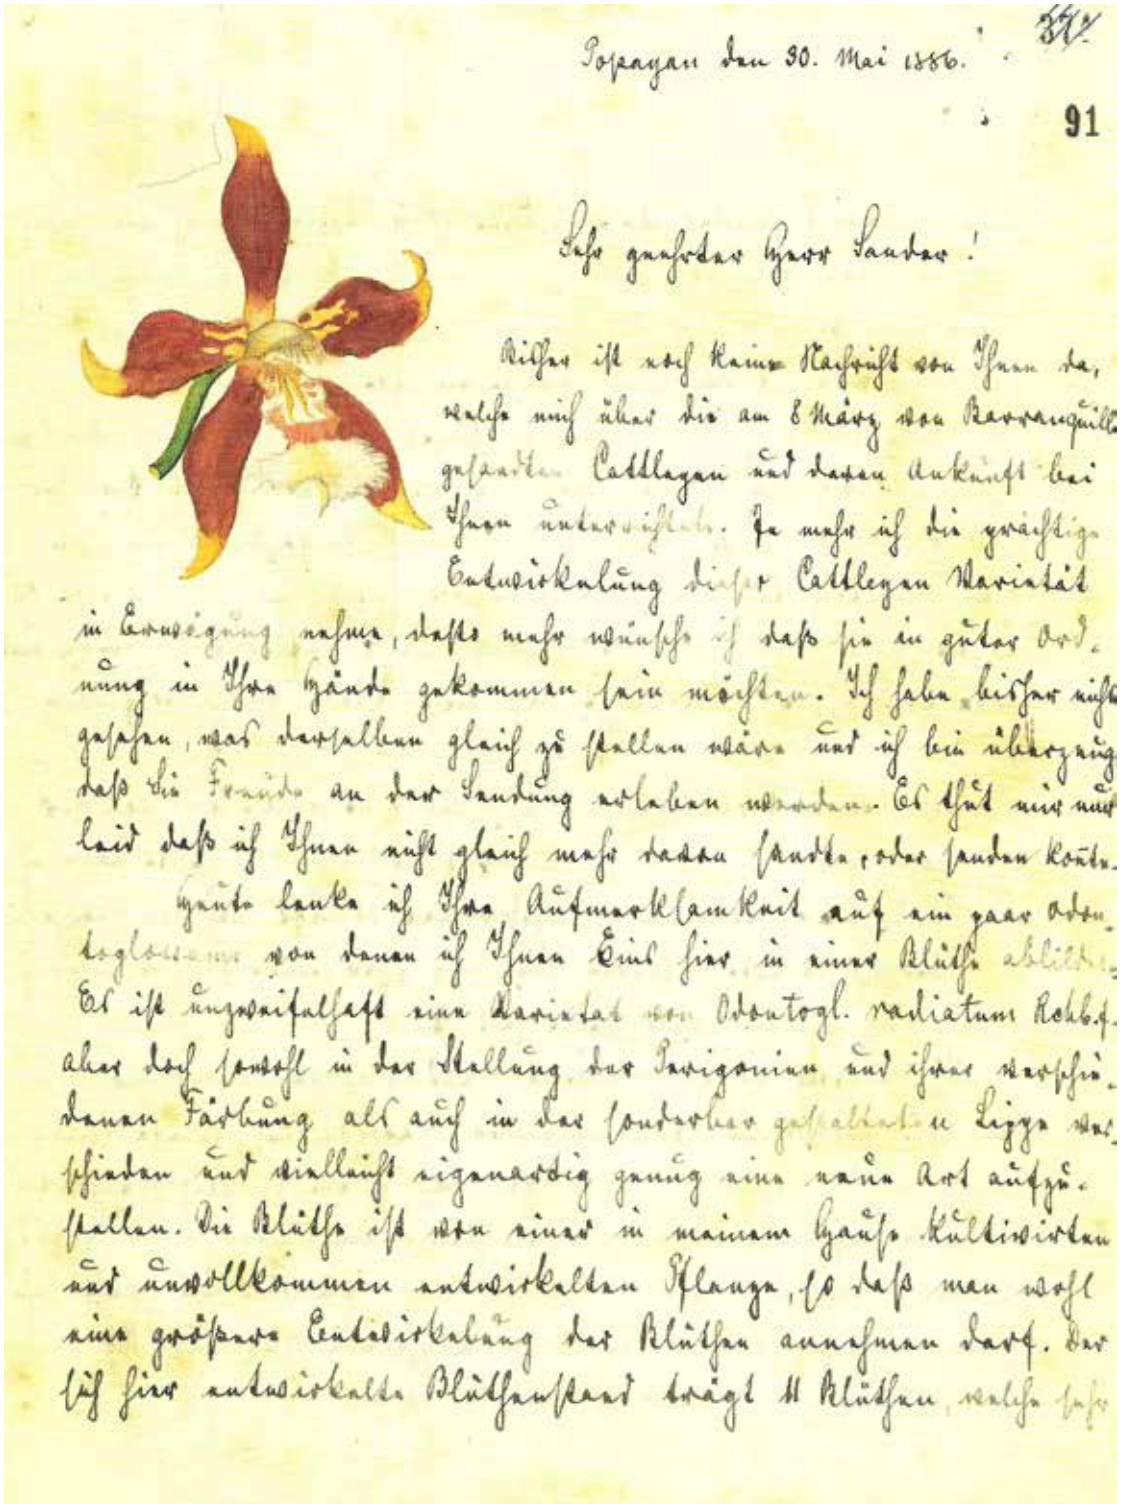 37.
Popayan den 30. Mai 1886.
91
Sehr geehrter Herr Sander!
Bisher ist noch keine Nachricht von Ihnen da,
welche mich über die am 8 März von Barranquilla
gesandten Cattleyen und deren Ankunft bei
Ihnen unterrichtete. Je mehr ich die prächtige
Entwickelung dieser Cattleyen Varietät
in Erwägung nehme, desto mehr wünsche ich daß sie in guter Ord-
nung in Ihre Hände gekommen sein möchten. Ich habe bisher nichts
gesehen, was derselben gleich zu stellen wäre und ich bin überzeugt
daß Sie Freude an der Sendung erleben werden. Es thut mir nur
leid daß ich Ihnen nicht gleich mehr davon sandte, oder senden konte.
Heute lenke ich Ihre Aufmerksamkeit auf ein paar Odon-
toglossums von denen ich Ihnen Eins hier in einer Blüthe abbilde.
Es ist unzweifelhaft eine Varietat von Odontogl. radiatum Rchb.f.
aber doch sowohl in der Stellung der Perigonien und ihrer verschie-
denen Färbung als auch in der sonderbar gestalteten Lippe ver-
schieden und vielleicht eigenartig genug eine neue Art aufzu-
stellen. Die Blüthe ist von einer in meinem Hause kultivirten
und unvollkommen entwickelten Pflanze, so daß man wohl
eine größere Entwickelung der Blüthen annehmen darf. Der
sich hier entwickelte Blüthenstand trägt 11 Blüthen, welche sehr